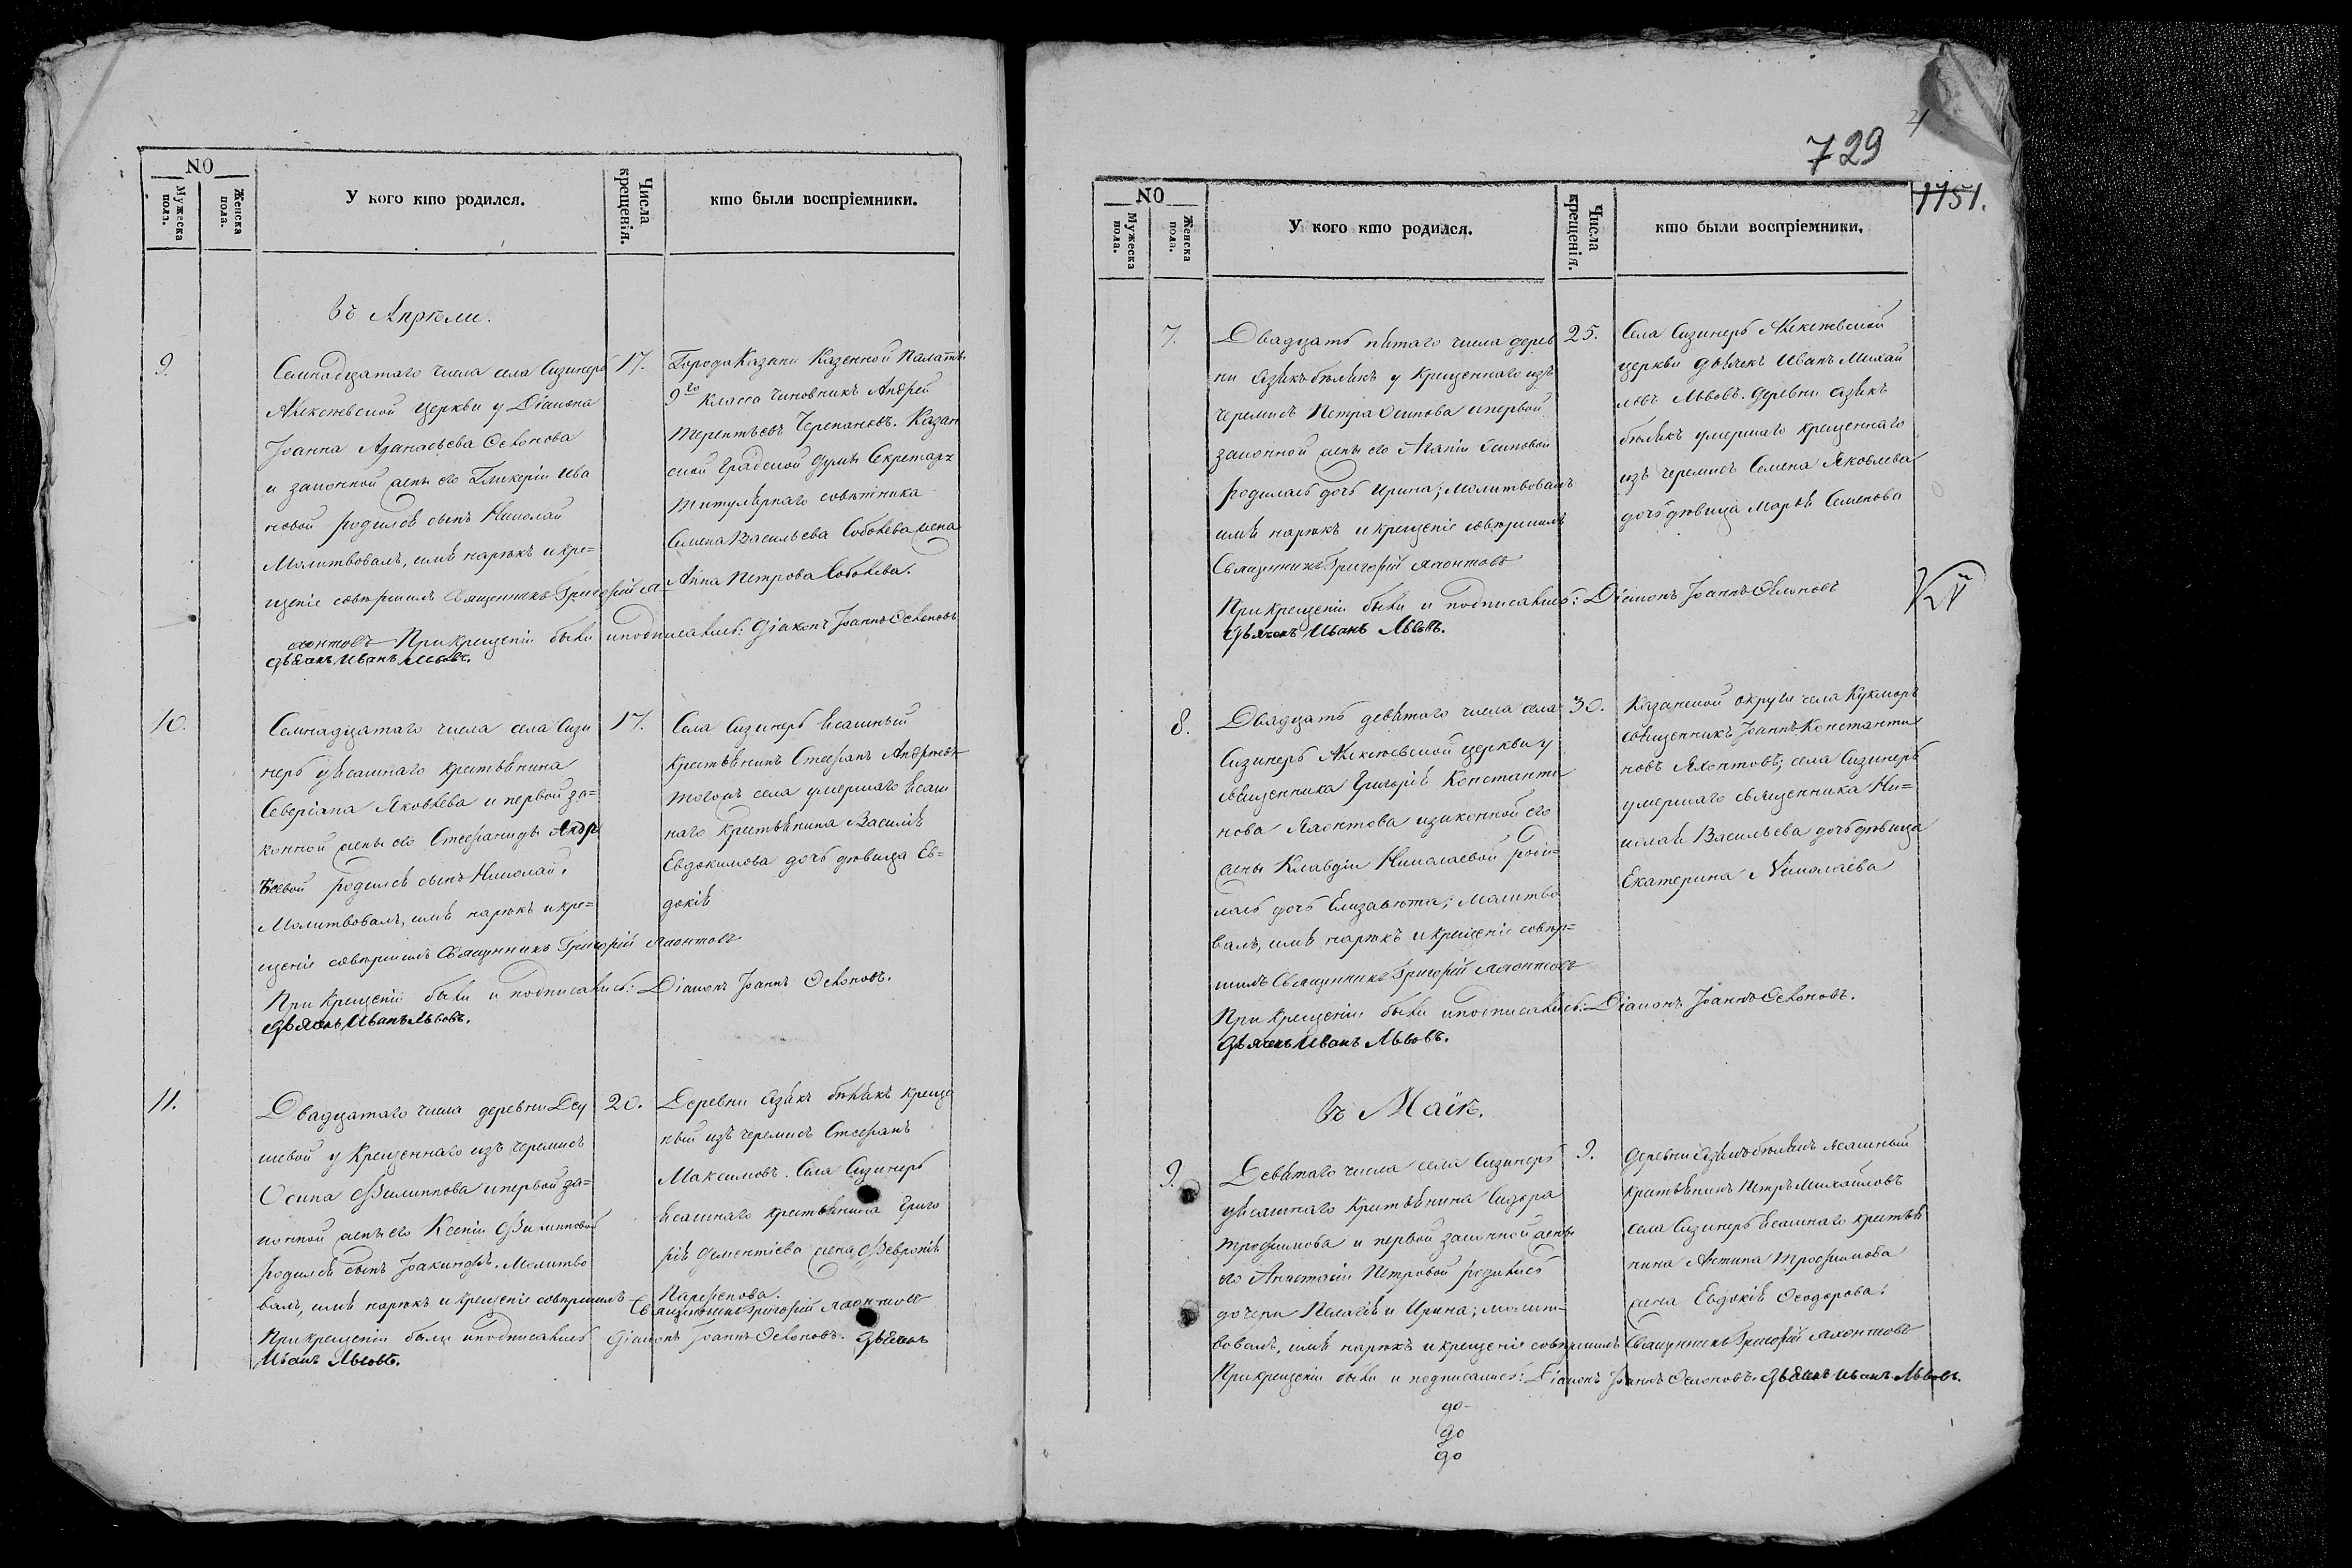 NO
Мужеска пола.
Женска пола.
У кого кто родился.
Числа крещенія.
кто были воспріемники.
Въ Апрѣли.
9.
Семнадцатаго числа села Сизинеръ
Алексѣевской церкви у Діакона
Іоанна Аѳанасьева
и законной жены его Гликеріи Ива
новой родился сынъ Николай
Молитвовалъ, имя нарѣкъ и кре=
щеніе совершилъ Священникъ Григорій Я=
хонтовъ При крещеніи были и подписались: Діаконъ Іоаннъ
Дьячекъ Иванъ Львовъ.
17.
Города Казани Казенной Палаты
9го класса чиновникъ Андрей
Терентьевъ Черепановъ. Казан
ской Градской Думы Секретаря
титулярнаго совѣтника
Семена Васильева жена
Анна Петрова
10.
Семнадцатаго числа села Сизи
неръ у ясашнаго крестьянина
Северіана Яковлева и первой за=
конной жены его Стефаниды Андр
ѣевой родился сынъ Николай.
Молитвовалъ, имя нарѣкъ и кре=
щеніе совершилъ Священникъ Григорій Яхонтовъ
При крещеніи были и подписались: Діаконъ Іоаннъ
Дьячекъ Иванъ Львовъ.
17.
Села Сизинеръ ясашный
крестьянинъ Стефанъ Андрѣевъ
тогожъ села умершаго ясаш
наго крестьянина Василія
Евдокимова дочь дѣвица Ев=
докія
11.
Двадцатаго числа деревни
шевой у крещеннаго изъ черемисъ
Осипа Филиппова и первой за=
конной жены его Ксеніи Филипповой
родился сынъ Іоакинфъ. Молитво
валъ, имя нарѣкъ и крещеніе совершилъ
Священникъ Григорій Яхонтовъ
При крещеніи были и подписались Діаконъ Іоаннъ Дьячекъ
Иванъ Львовъ.
20.
Деревни Азякъ бѣлякъ креще
ный изъ черемисъ Стефанъ
Максимовъ. Села Сизинеръ
ясашнаго крестьянина Григо
рія Дементіева жена Февронія
Парфенова.
729
1751.
NO
Мужеска пола.
Женска пола.
У кого кто родился.
Числа крещенія.
кто были воспріемники.
7.
Двадцать пятаго числа дерев
ни Азякъ бѣлякъ у крещеннаго изъ
черемисъ Петра Осипова и первой
законной жены его Агапіи Осиповой
родилась дочь Ирина; Молитвовалъ
имя нарѣкъ и крещеніе совершилъ
Священникъ Григорій Яхонтовъ
При крещеніи были и подписались: Діаконъ Іоаннъ
Дьячекъ Иванъ Львовъ.
25.
Села Сизинеръ Алексѣевской
церкви дьячекъ Иванъ Михай
ловъ Львовъ. деревни Азякъ
бѣлякъ умершаго крещеннаго
изъ черемисъ Семена Яковлева
дочь дѣвица Марья Семенова
8.
Двадцать девятаго числа села
Сизинеръ Алексѣевской церкви у
священника Григорія Константи
нова Яхонтова и законной его
жены Клавдіи Николаевой роди=
лась дочь Елизавета; Молитво
валъ, имя нарѣкъ и крещеніе совер=
шилъ Священникъ Григорій Яхонтовъ
При крещеніи были и подписались: Діаконъ Іоаннъ
Дьячекъ Иванъ Львовъ.
30.
Казанской округи села Кукморъ
священникъ Іоаннъ Константи
новъ Яхонтовъ; села Сизинеръ
умершаго священника Ни=
колая Васильева дочь дѣвица
Екатерина Николаева
Въ Маіѣ.
9.
Девятаго числа села Сизинеръ
у ясашнаго крестьянина Сидора
Трофимова и первой законной жены
его Анастасіи Петровой родились
дочери Пелагія и Ирина; молит=
вовалъ, имя нарѣкъ и крещеніе совершилъ Священникъ Григорій Яхонтовъ
При крещеніи были и подписались: Діаконъ Іоаннъ Дьячекъ Иванъ Львовъ.
9.
деревни Азякъ бѣлякъ ясашный
крестьянинъ Петръ Михайловъ
села Сизинеръ ясашнаго крестья
нина Антипа Трофимова
жена Евдокія Ѳеодорова.
до
до
до